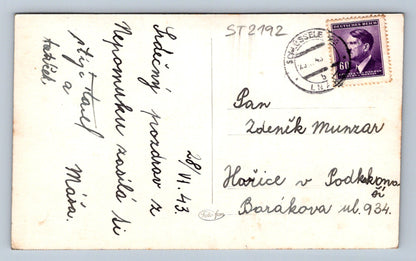 28/VI. 43.
Srdečný pozdrav z
Nepomuku zasílá ti
strýc Karel
a Máňa.
tatíček
ST2192
DEUTSCHES REICH
60
Pan
Zdeněk Munzar
Hořice v Podkrkonoší
Barákova ul. 934.